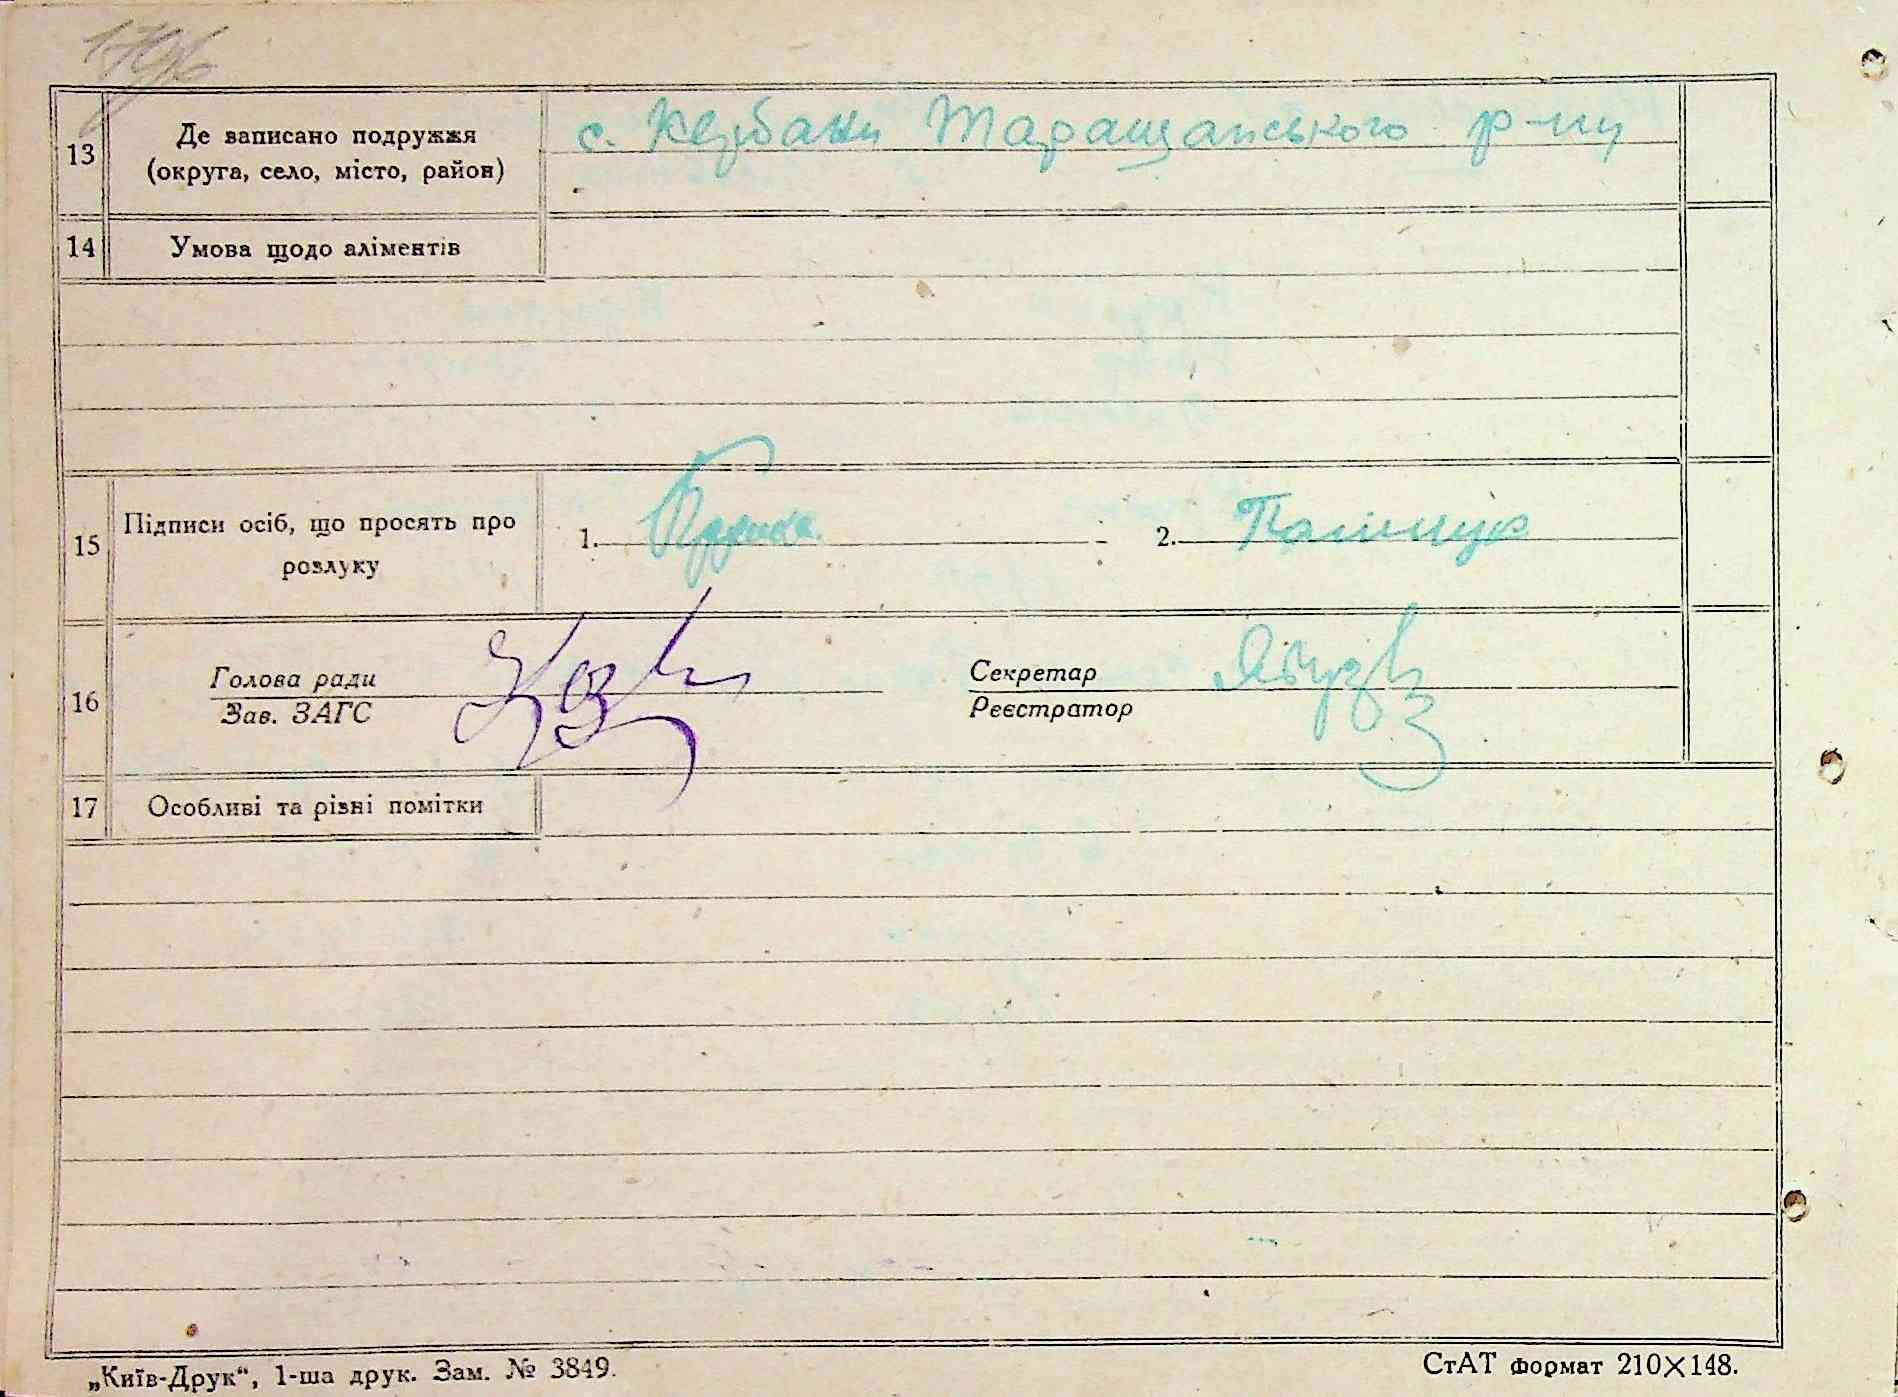 13
Де записано подружжя
(округа, село, місто, район)
с. Кербани Таращанського р-ну
14
Умова щодо аліментів
15
Підписи осіб, що просять про
розлуку
1.
2.
16
Голова ради
Зав. ЗАГС
Секретар
Реєстратор
17
Особливі та різні помітки
„Київ-Друк“, 1-ша друк. Зам. № 3849.
СтАТ формат 210×148.